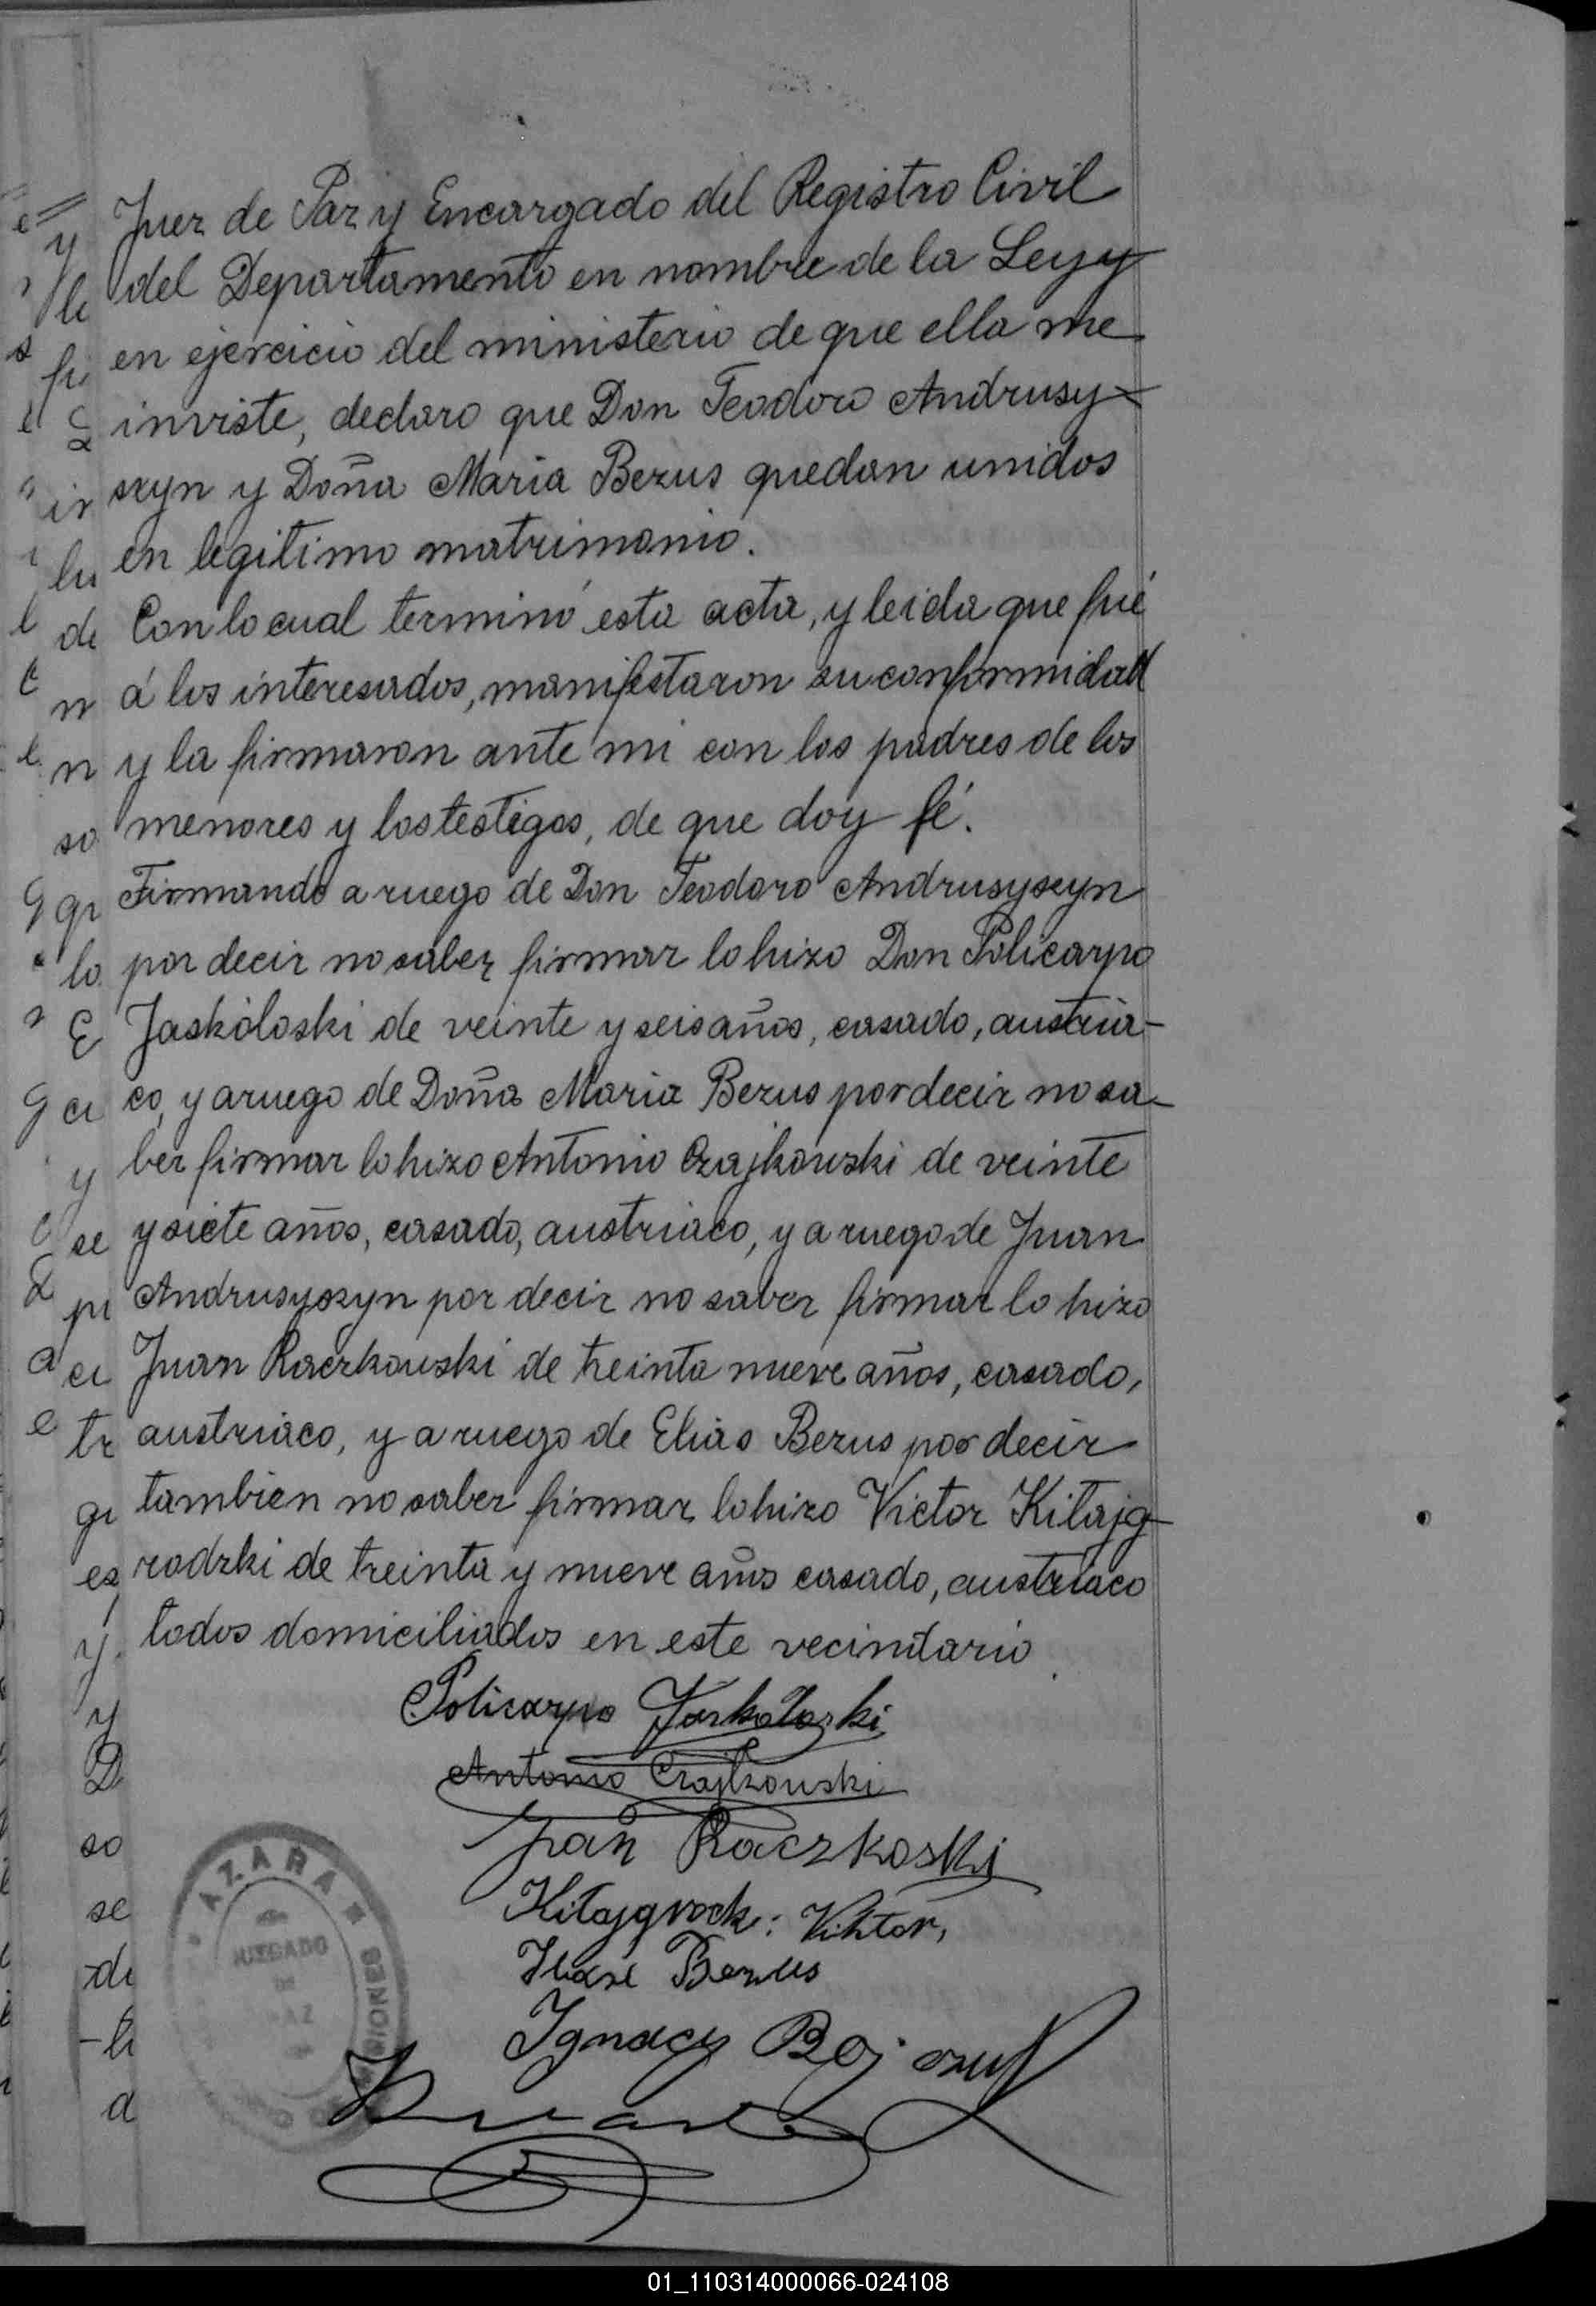 Juez de Paz y Encargado del Registro Civil
del Departamento en nombre de la Ley y
en ejercicio del ministerio de que ella me
inviste, declaro que Don Teodoro Andrusy-
szyn y Doña Maria Bezus quedan unidos
en legitimo matrimonio.
Con lo cual terminó esta acta, y leida que fué
á los interesados, manifestaron su conformidad
y la firmaron ante mi con los padres de los
menores y los testigos, de que doy fé.
Firmando a ruego de Don Teodoro Andrusyszyn
por decir no saber firmar lo hizo Don Policarpo
Jaskóloski de veinte y seis años, casado, austria-
co, y a ruego de Doña Maria Bezus por decir no sa-
ber firmar lo hizo Antonio Czajkowski de veinte
y siete años, casado, austriaco, y a ruego de Juan
Andrusyszyn por decir no saber firmar lo hizo
Juan Raczkowski de treinta nueve años, casado,
austriaco, y a ruego de Elias Bezus por decir
tambien no saber firmar lo hizo Victor Kitajg-
rodzki de treinta y nueve años casado, austriaco
todos domiciliados en este vecindario.
Policarpo Jaskoloski
Antonio Czajkowski
Jan Raczkoski
Kitajgrock: Viktor,
Bezus
Ignacy
AZARA
JUZGADO
DE
MISIONES
01_110314000066-024108